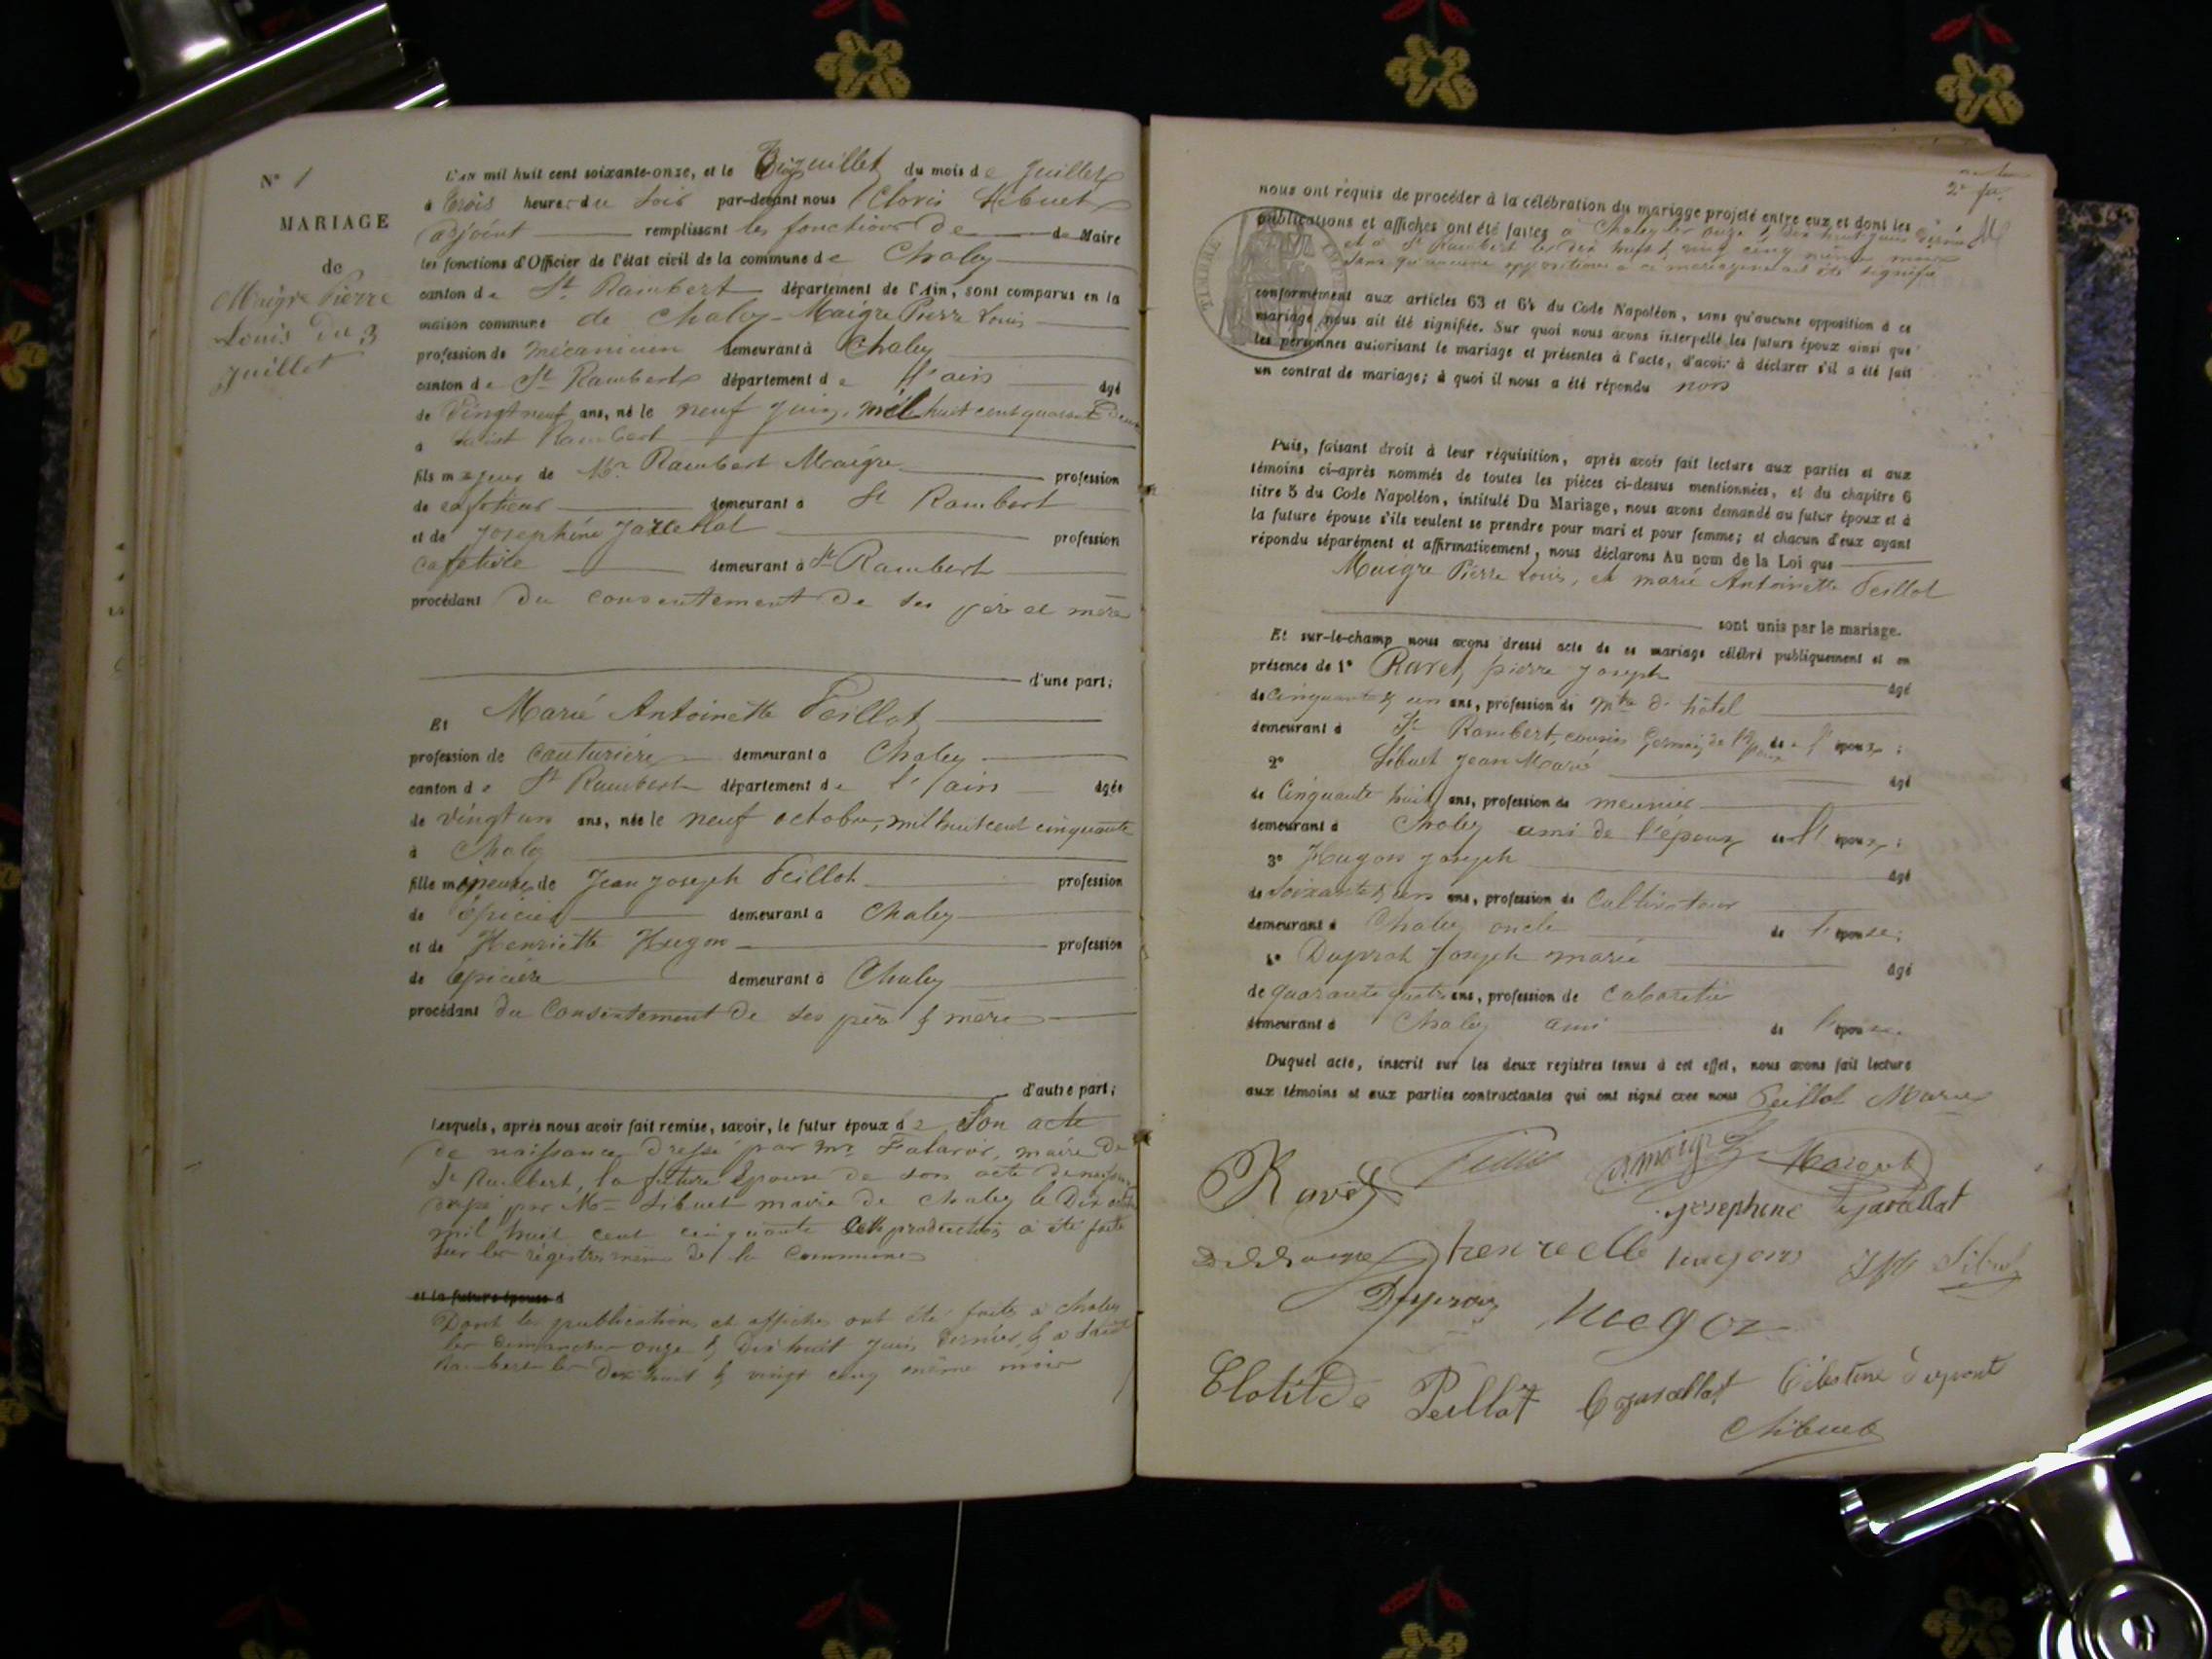 N° 1
MARIAGE
de
Maigre Pierre
Louis du 3
juillet
L'AN mil huit cent soixante-onze, et le juillet du mois de Juillet
à trois heures du soir par-devant nous Clovis Sibuet
adjoint remplissant les fonctions de de Maire
les fonctions d'Officier de l'état civil de la commune de Chaley
canton de St Rambert département de l'Ain, sont comparus en la
maison commune de Chaley Maigre Pierre Louis
profession de mécanicien demeurant à Chaley
canton de St Rambert département de l'ain âgé
de vingt neuf ans, né le neuf juin, mil huit cent quarante deux
à Saint Rambert
fils majeur de Mr Rambert Maigre profession
de cafetier demeurant à St Rambert
et de Josephine Javallat profession
cafetière demeurant à St Rambert
procédant du consentement de ses père et mère
d'une part;
Et Marie Antoinette Peillot
profession de couturière demeurant à Chaley
canton de St Rambert département de l'ain âgée
de vingt un ans, née le neuf octobre, mil huit cent cinquante
à Chaley
fille mineure de Jean Joseph Peillot profession
de épicier demeurant à Chaley
et de Henriette Hugon profession
de épicière demeurant à Chaley
procédant du consentement de ses père & mère
d'autre part;
Lesquels, après nous avoir fait remise, savoir, le futur époux de Son acte
de naissance dressé par Mr maire de
St Rambert, la future épouse de son acte de naissance
dressé par Mr Sibuet maire de Chaley le dix octobre
mil huit cent cinquante cette production a été faite
sur les régistres même de la Commune
et la future épouse d
Dont les publications et affiches ont été faites à Chaley
les dimanches onze & dix huit juin dernier, & à Saint
Rambert les dix huit & vingt cinq même mois
2e
nous ont requis de procéder à la célébration du mariage projeté entre eux et dont les
publications et affiches ont été faites à Chaley les onze & dix huit juin dernier
et à St Rambert les dix huit & vingt cinq même mois
sans qu'aucune opposition à ce mariage ait été signifiée
TIMBRE
conformément aux articles 63 et 64 du Code Napoléon, sans qu'aucune opposition à ce
mariage nous ait été signifiée. Sur quoi nous avons interpellé les futurs époux ainsi que
les personnes autorisant le mariage et présentes à l'acte, d'avoir à déclarer s'il a été fait
un contrat de mariage; à quoi il nous a été répondu non
Puis, faisant droit à leur réquisition, après avoir fait lecture aux parties et aux
témoins ci-après nommés de toutes les pièces ci-dessus mentionnées, et du chapitre 6
titre 5 du Code Napoléon, intitulé Du Mariage, nous avons demandé au futur époux et à
la future épouse s'ils veulent se prendre pour mari et pour femme; et chacun d'eux ayant
répondu séparément et affirmativement, nous déclarons Au nom de la Loi que
Maigre Pierre Louis, et marie Antoinette Peillot
sont unis par le mariage.
Et sur-le-champ nous avons dressé acte de ce mariage célébré publiquement et en
présence de 1° Ravet, pierre Joseph âgé
de cinquante & un ans, profession de mtre d'hôtel
demeurant à St Rambert, cousin germain de l'époux de l'époux;
2° Sibuet Jean Marie âgé
de Cinquante huit ans, profession de meunier
demeurant à Chaley ami de l'époux de l'époux;
3° Hugon Joseph âgé
de Soixante & un ans, profession de Cultivateur
demeurant à Chaley oncle de l'épouse;
4° Duprat Joseph marie âgé
de quarante quatre ans, profession de cabaretier
demeurant à Chaley ami de l'épouse.
Duquel acte, inscrit sur les deux registres tenus à cet effet, nous avons fait lecture
aux témoins et aux parties contractantes qui ont signé avec nous Peillot Marie
Ravet Maigre
josephine Javallat
henriette hugons Sibuet
Hugon
Clotilde Peillot Javallat Célestine Dupont
Sibuet